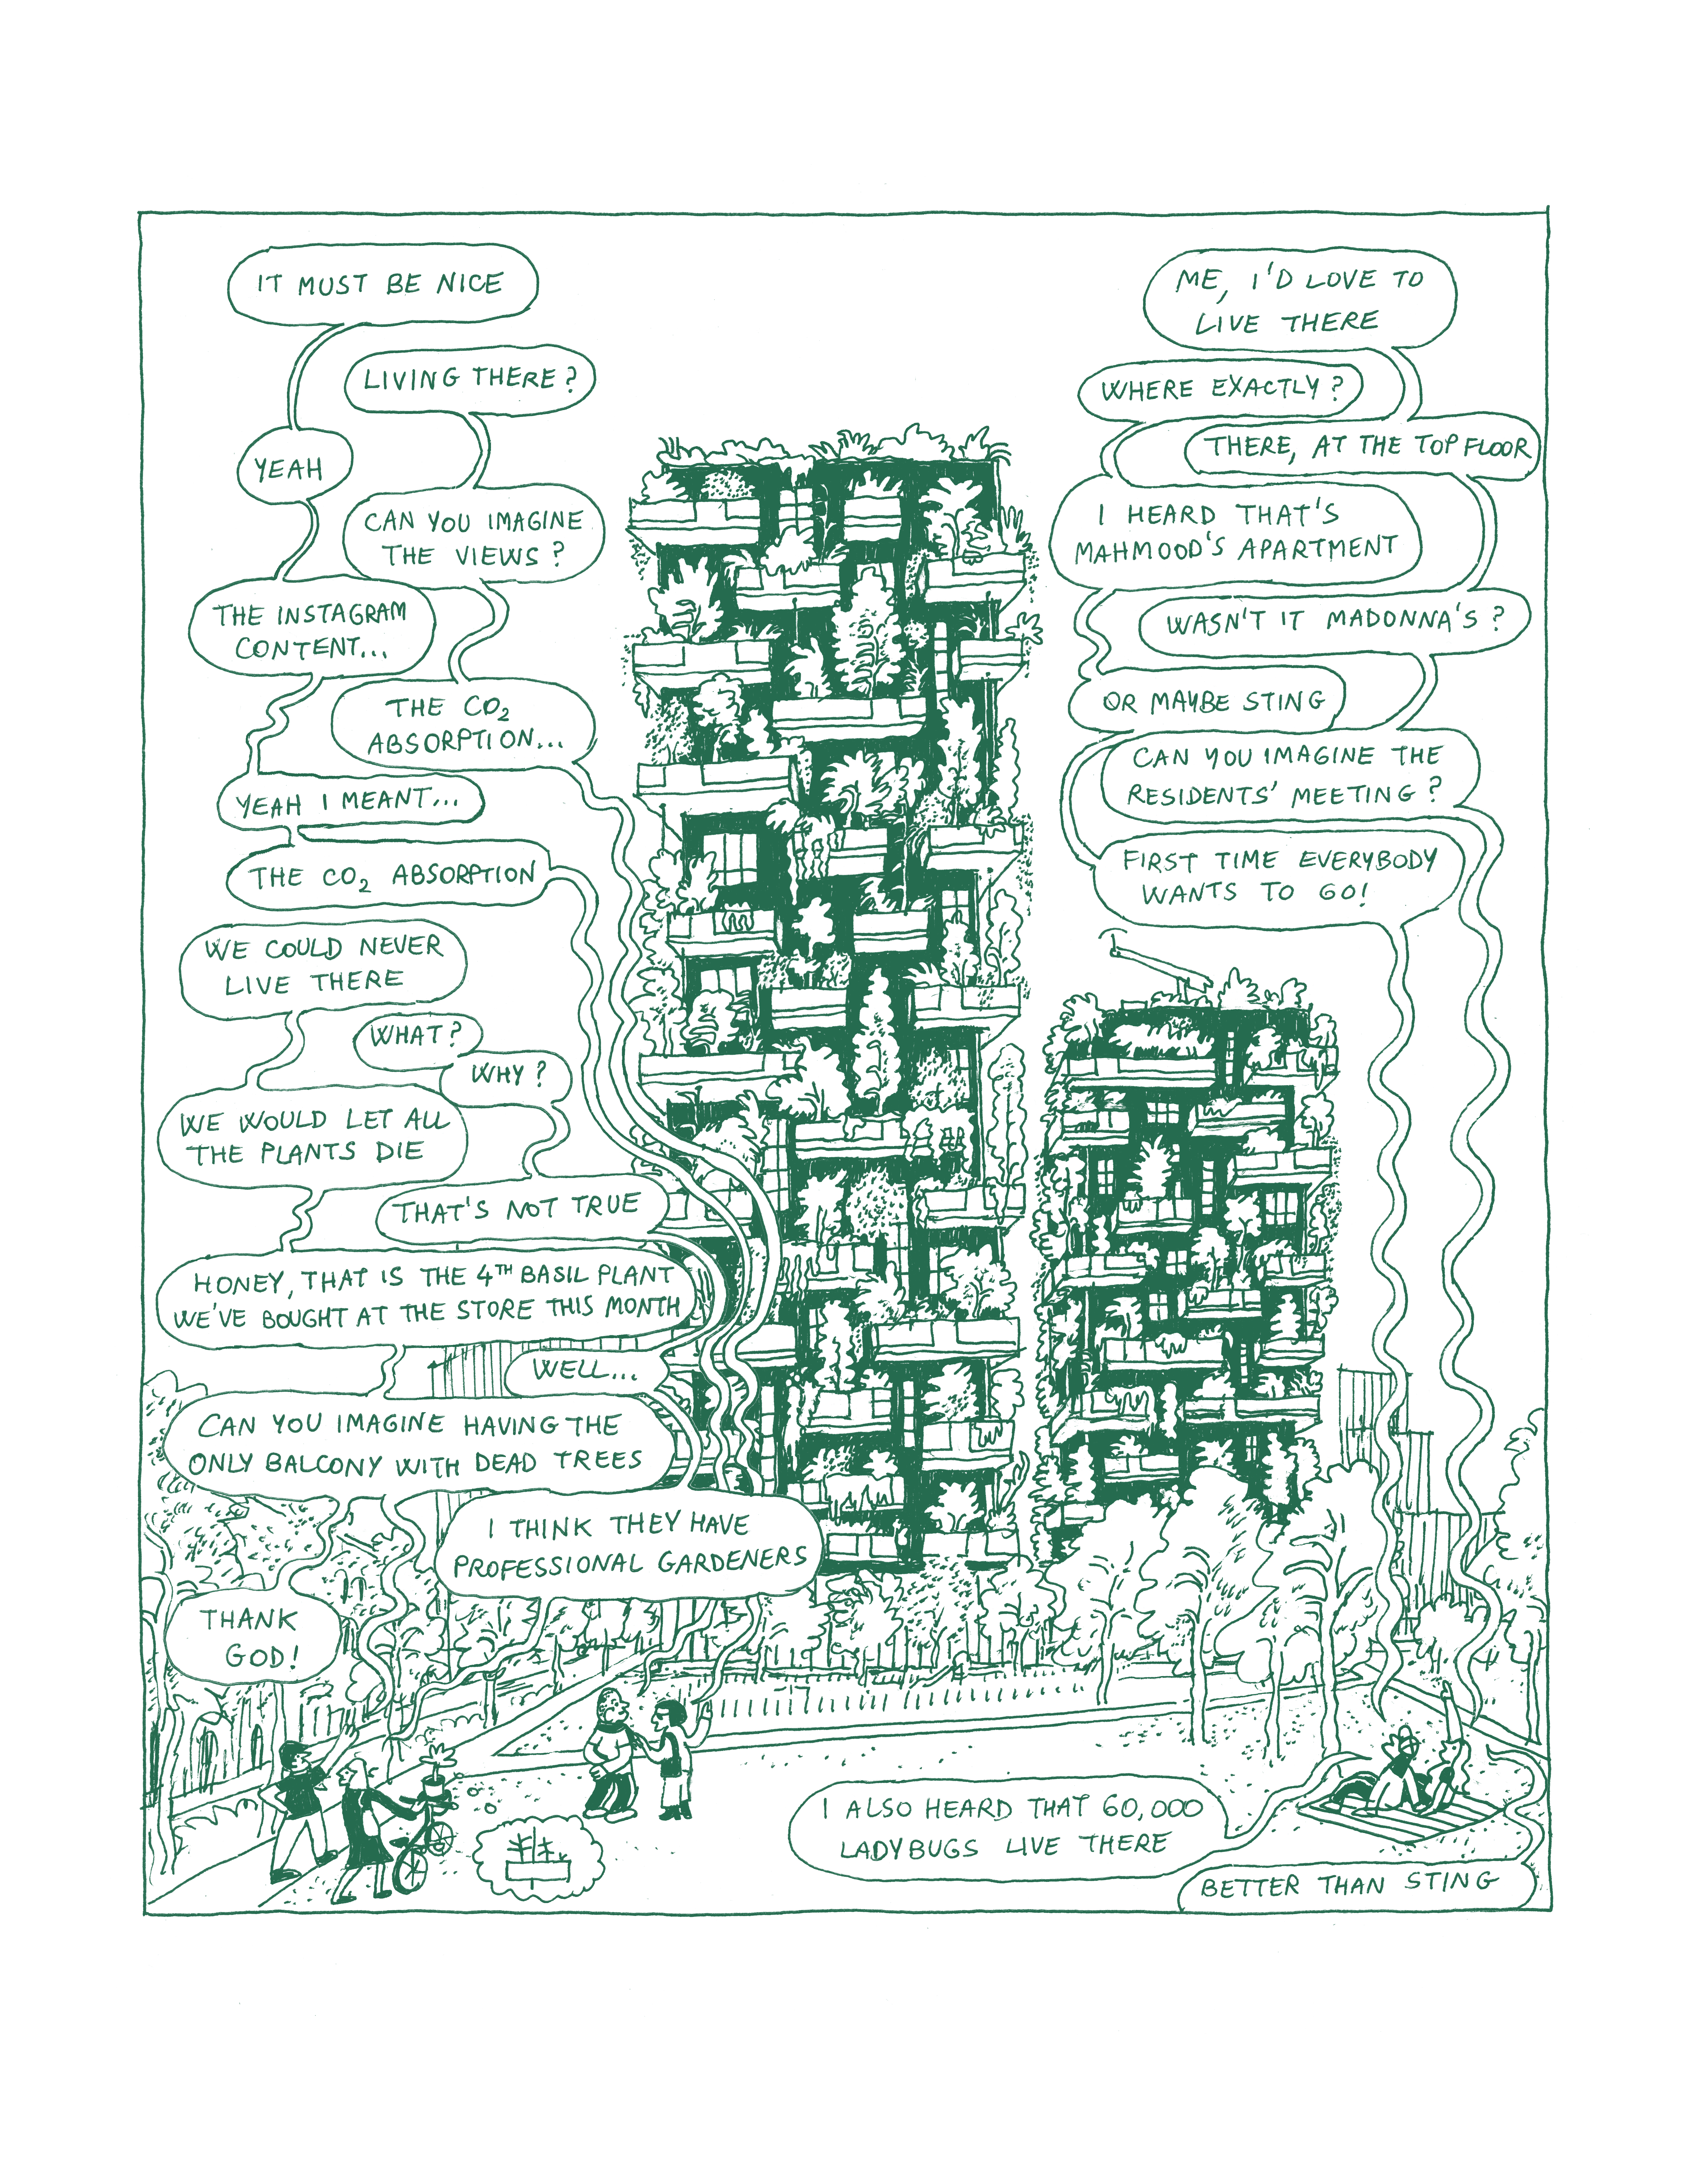 IT MUST BE NICE
LIVING THERE?
YEAH
CAN YOU IMAGINE
THE VIEWS?
THE INSTAGRAM
CONTENT...
THE CO₂
ABSORPTION...
YEAH I MEANT...
THE CO₂ ABSORPTION
WE COULD NEVER
LIVE THERE
WHAT?
WHY?
WE WOULD LET ALL
THE PLANTS DIE
THAT'S NOT TRUE
HONEY, THAT IS THE 4TH BASIL PLANT
WE'VE BOUGHT AT THE STORE THIS MONTH
WELL...
CAN YOU IMAGINE HAVING THE
ONLY BALCONY WITH DEAD TREES
I THINK THEY HAVE
PROFESSIONAL GARDENERS
THANK
GOD!
ME, I'D LOVE TO
LIVE THERE
WHERE EXACTLY?
THERE, AT THE TOP FLOOR
I HEARD THAT'S
MAHMOOD'S APARTMENT
WASN'T IT MADONNA'S?
OR MAYBE STING
CAN YOU IMAGINE THE
RESIDENTS' MEETING?
FIRST TIME EVERYBODY
WANTS TO GO!
I ALSO HEARD THAT 60,000
LADYBUGS LIVE THERE
BETTER THAN STING